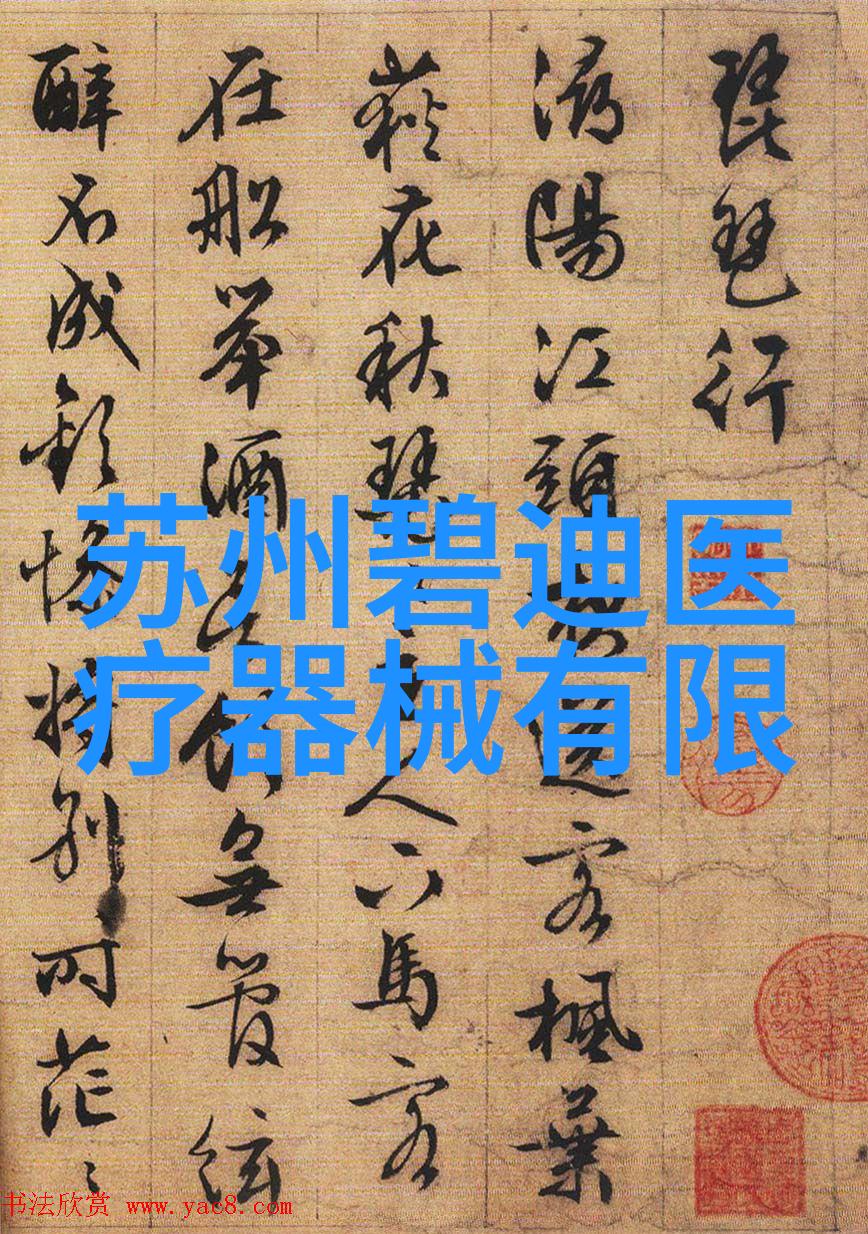 琵琶行
潯陽江頭夜送客楓葉
荻花秋瑟〻主人下馬客
在船舉酒欲飲無管絃
醉不成歡慘將別〻時茫〻
苏州碧迪医
疗器械有限
书法欣赏 www.yac8.com